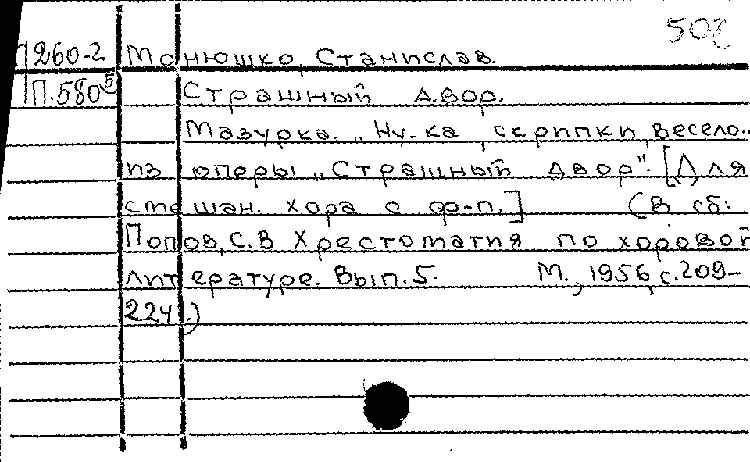 508
П260-2 Монюшко, Станислав.
П.580⁵ Страшный двор.
Мазурка. „Ну-ка, скрипки, весело..
из оперы „Страшный двор". [Для
смешан. хора с ф-п.] (В сб:
Попов, С.В Хрестоматия по хоровой
литературе. Вып.5. М., 1956, с.209-
224.)